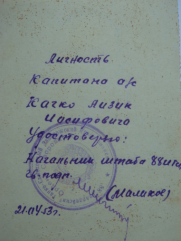 Личность
Капитана а/с
Качко Лизик
Иосифовича
Удостоверяю:
Начальник штаба 88
гв. полк
(Маликов)
21.04.53г.